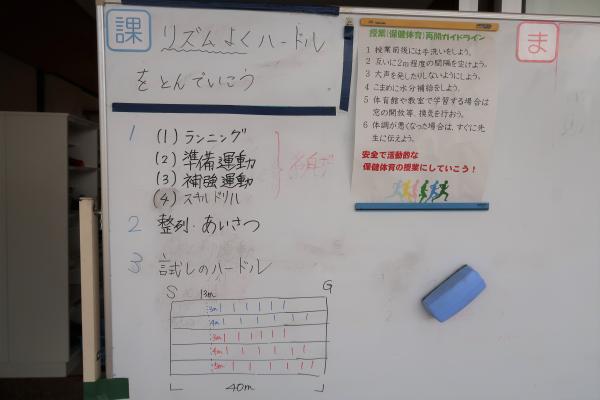 課
リズムよくハードル
をとんでいこう
1 (1) ランニング
(2) 準備運動
(3) 補強運動
(4) スキルドリル
各自で
2 整列・あいさつ
3 試しのハードル
S 13m G
3m
4m
3m
4m
5m
40m
授業(保健体育)再開ガイドライン
1 授業前後には手洗いをしよう。
2 互いに2m程度の間隔を空けよう。
3 大声を発したりしないようにしよう。
4 こまめに水分補給をしよう。
5 体育館や教室で学習する場合は
窓の開放等、換気を行おう。
6 体調が悪くなった場合は、すぐに先
生に伝えよう。
安全で活動的な
保健体育の授業にしていこう!
ま